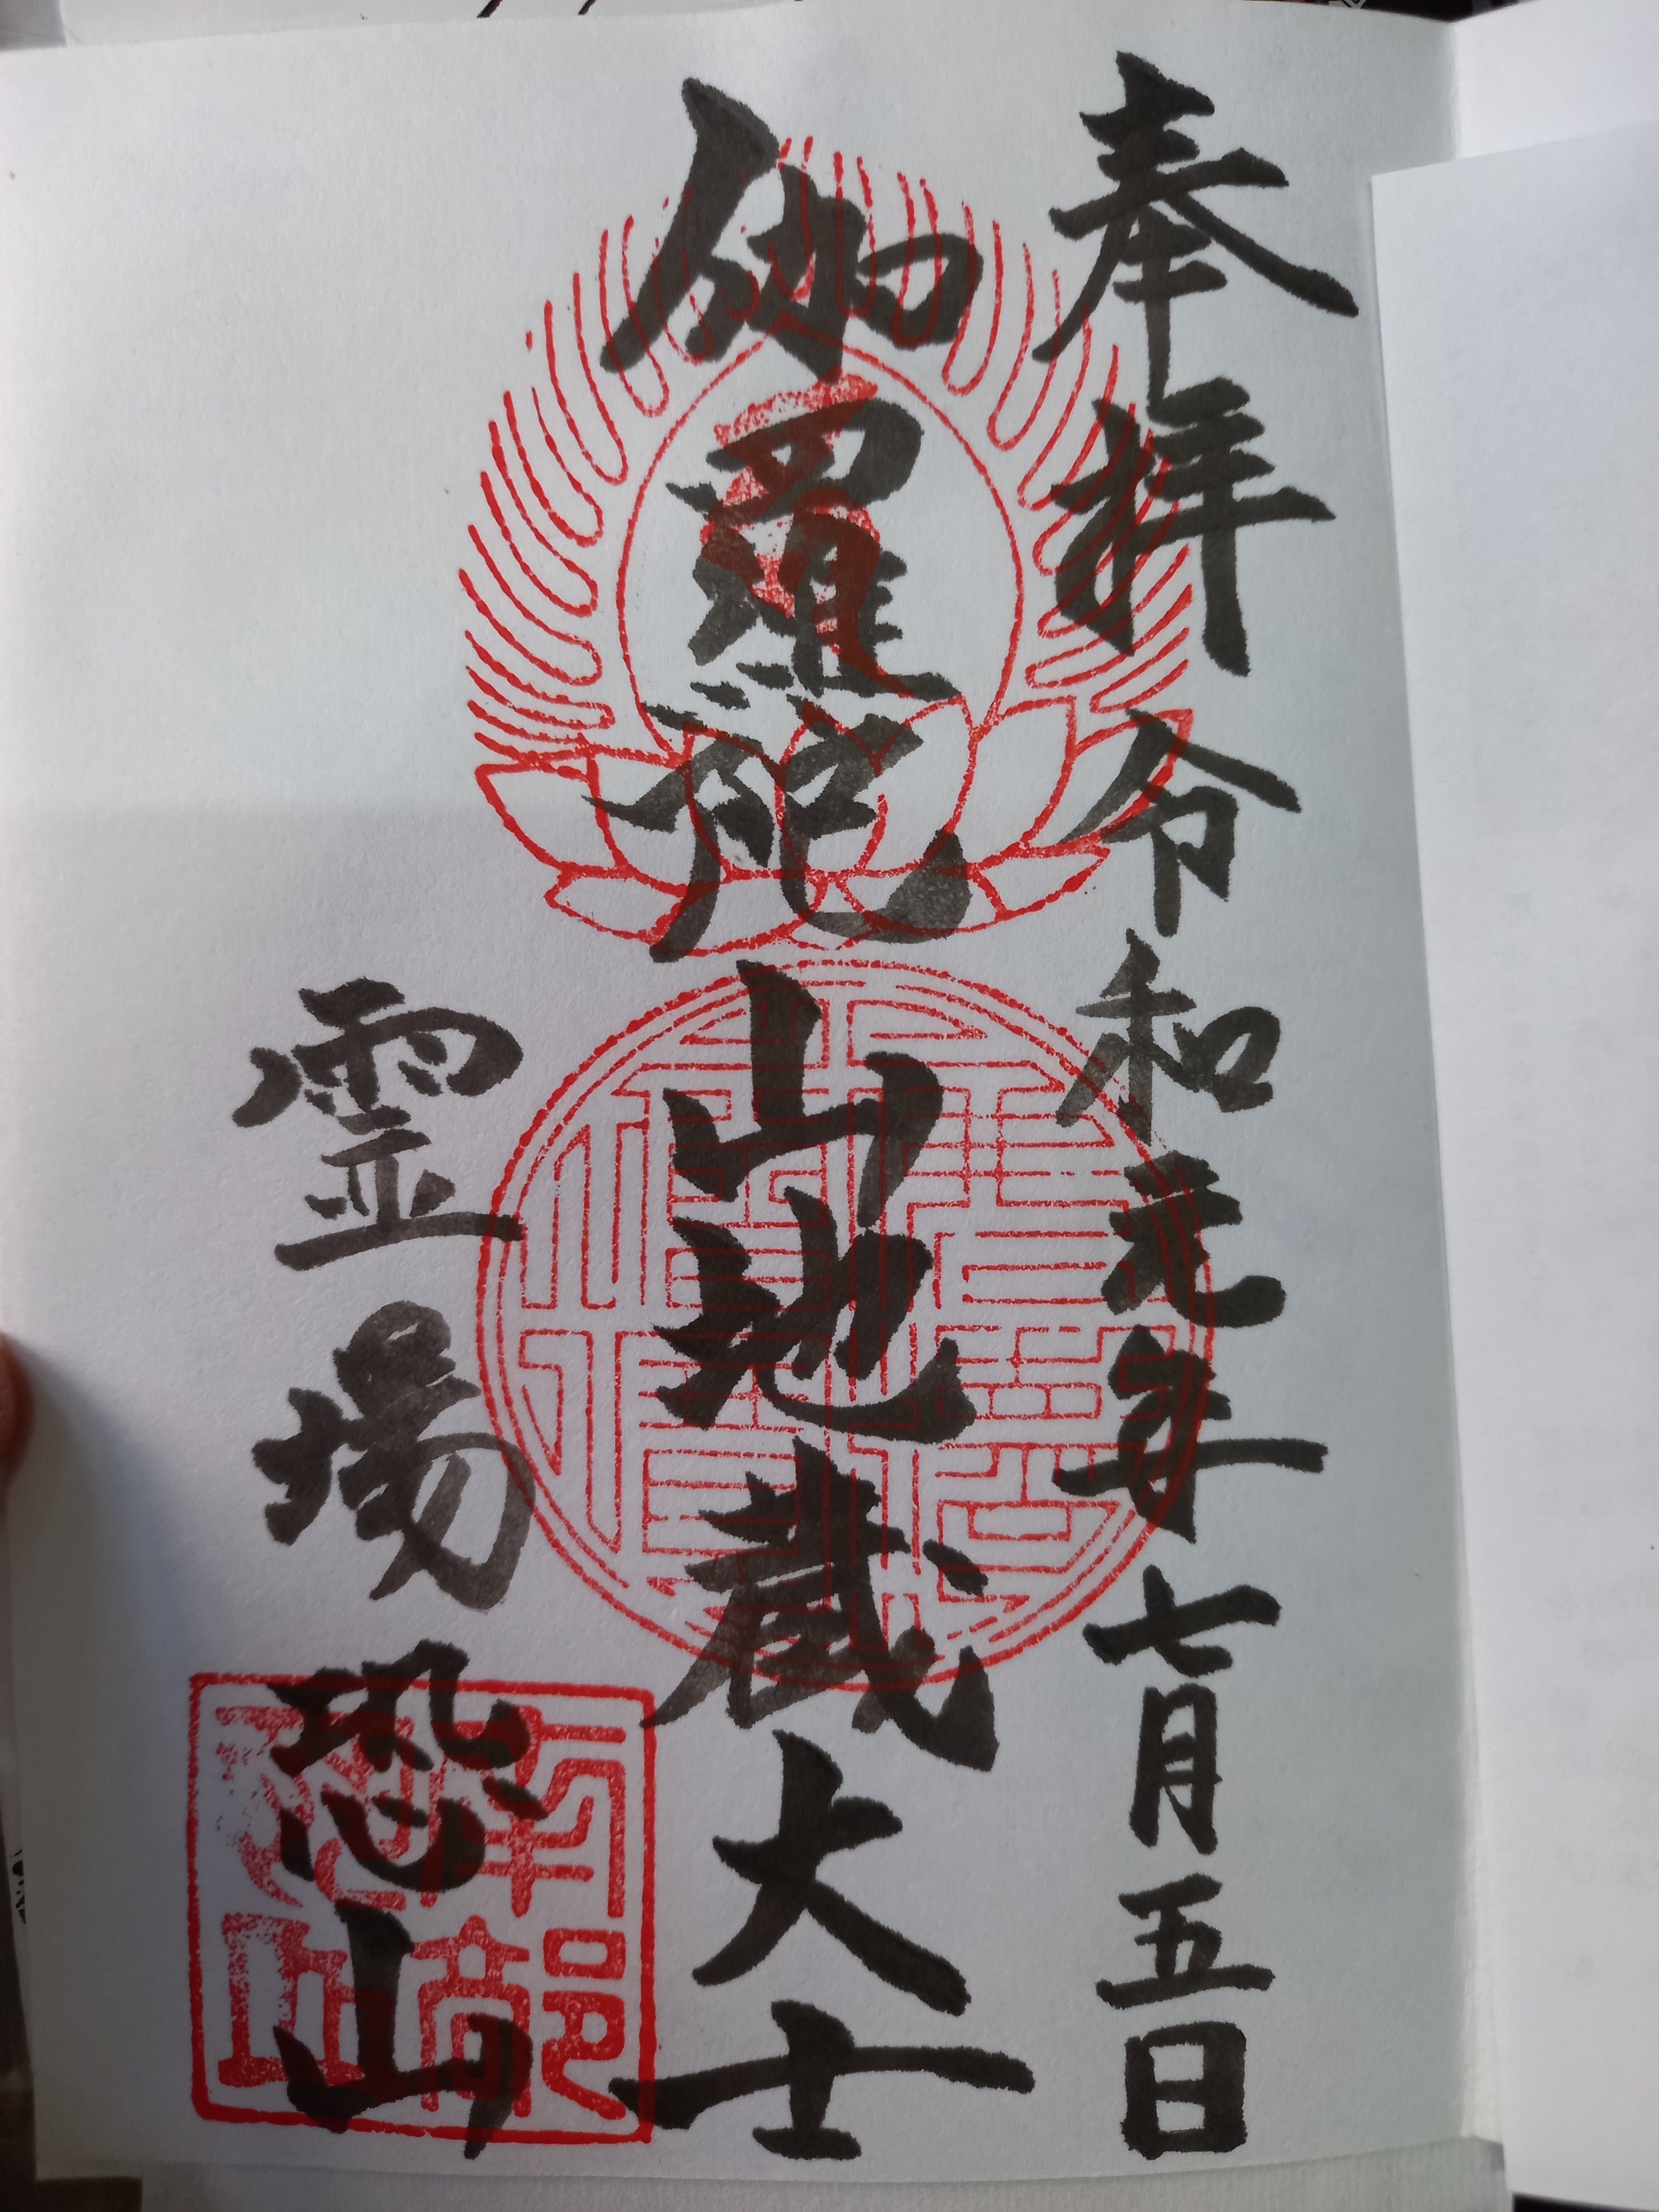 奉拝 令和元年七月五日
伽羅陀山地蔵大士
霊場 恐山